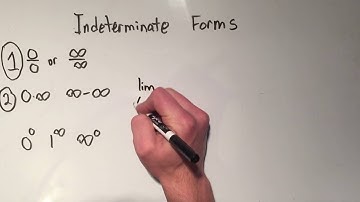 Indeterminate Forms
1 0/0 or ∞/∞
2 0·∞ ∞-∞ lim
0⁰ 1^∞ ∞⁰